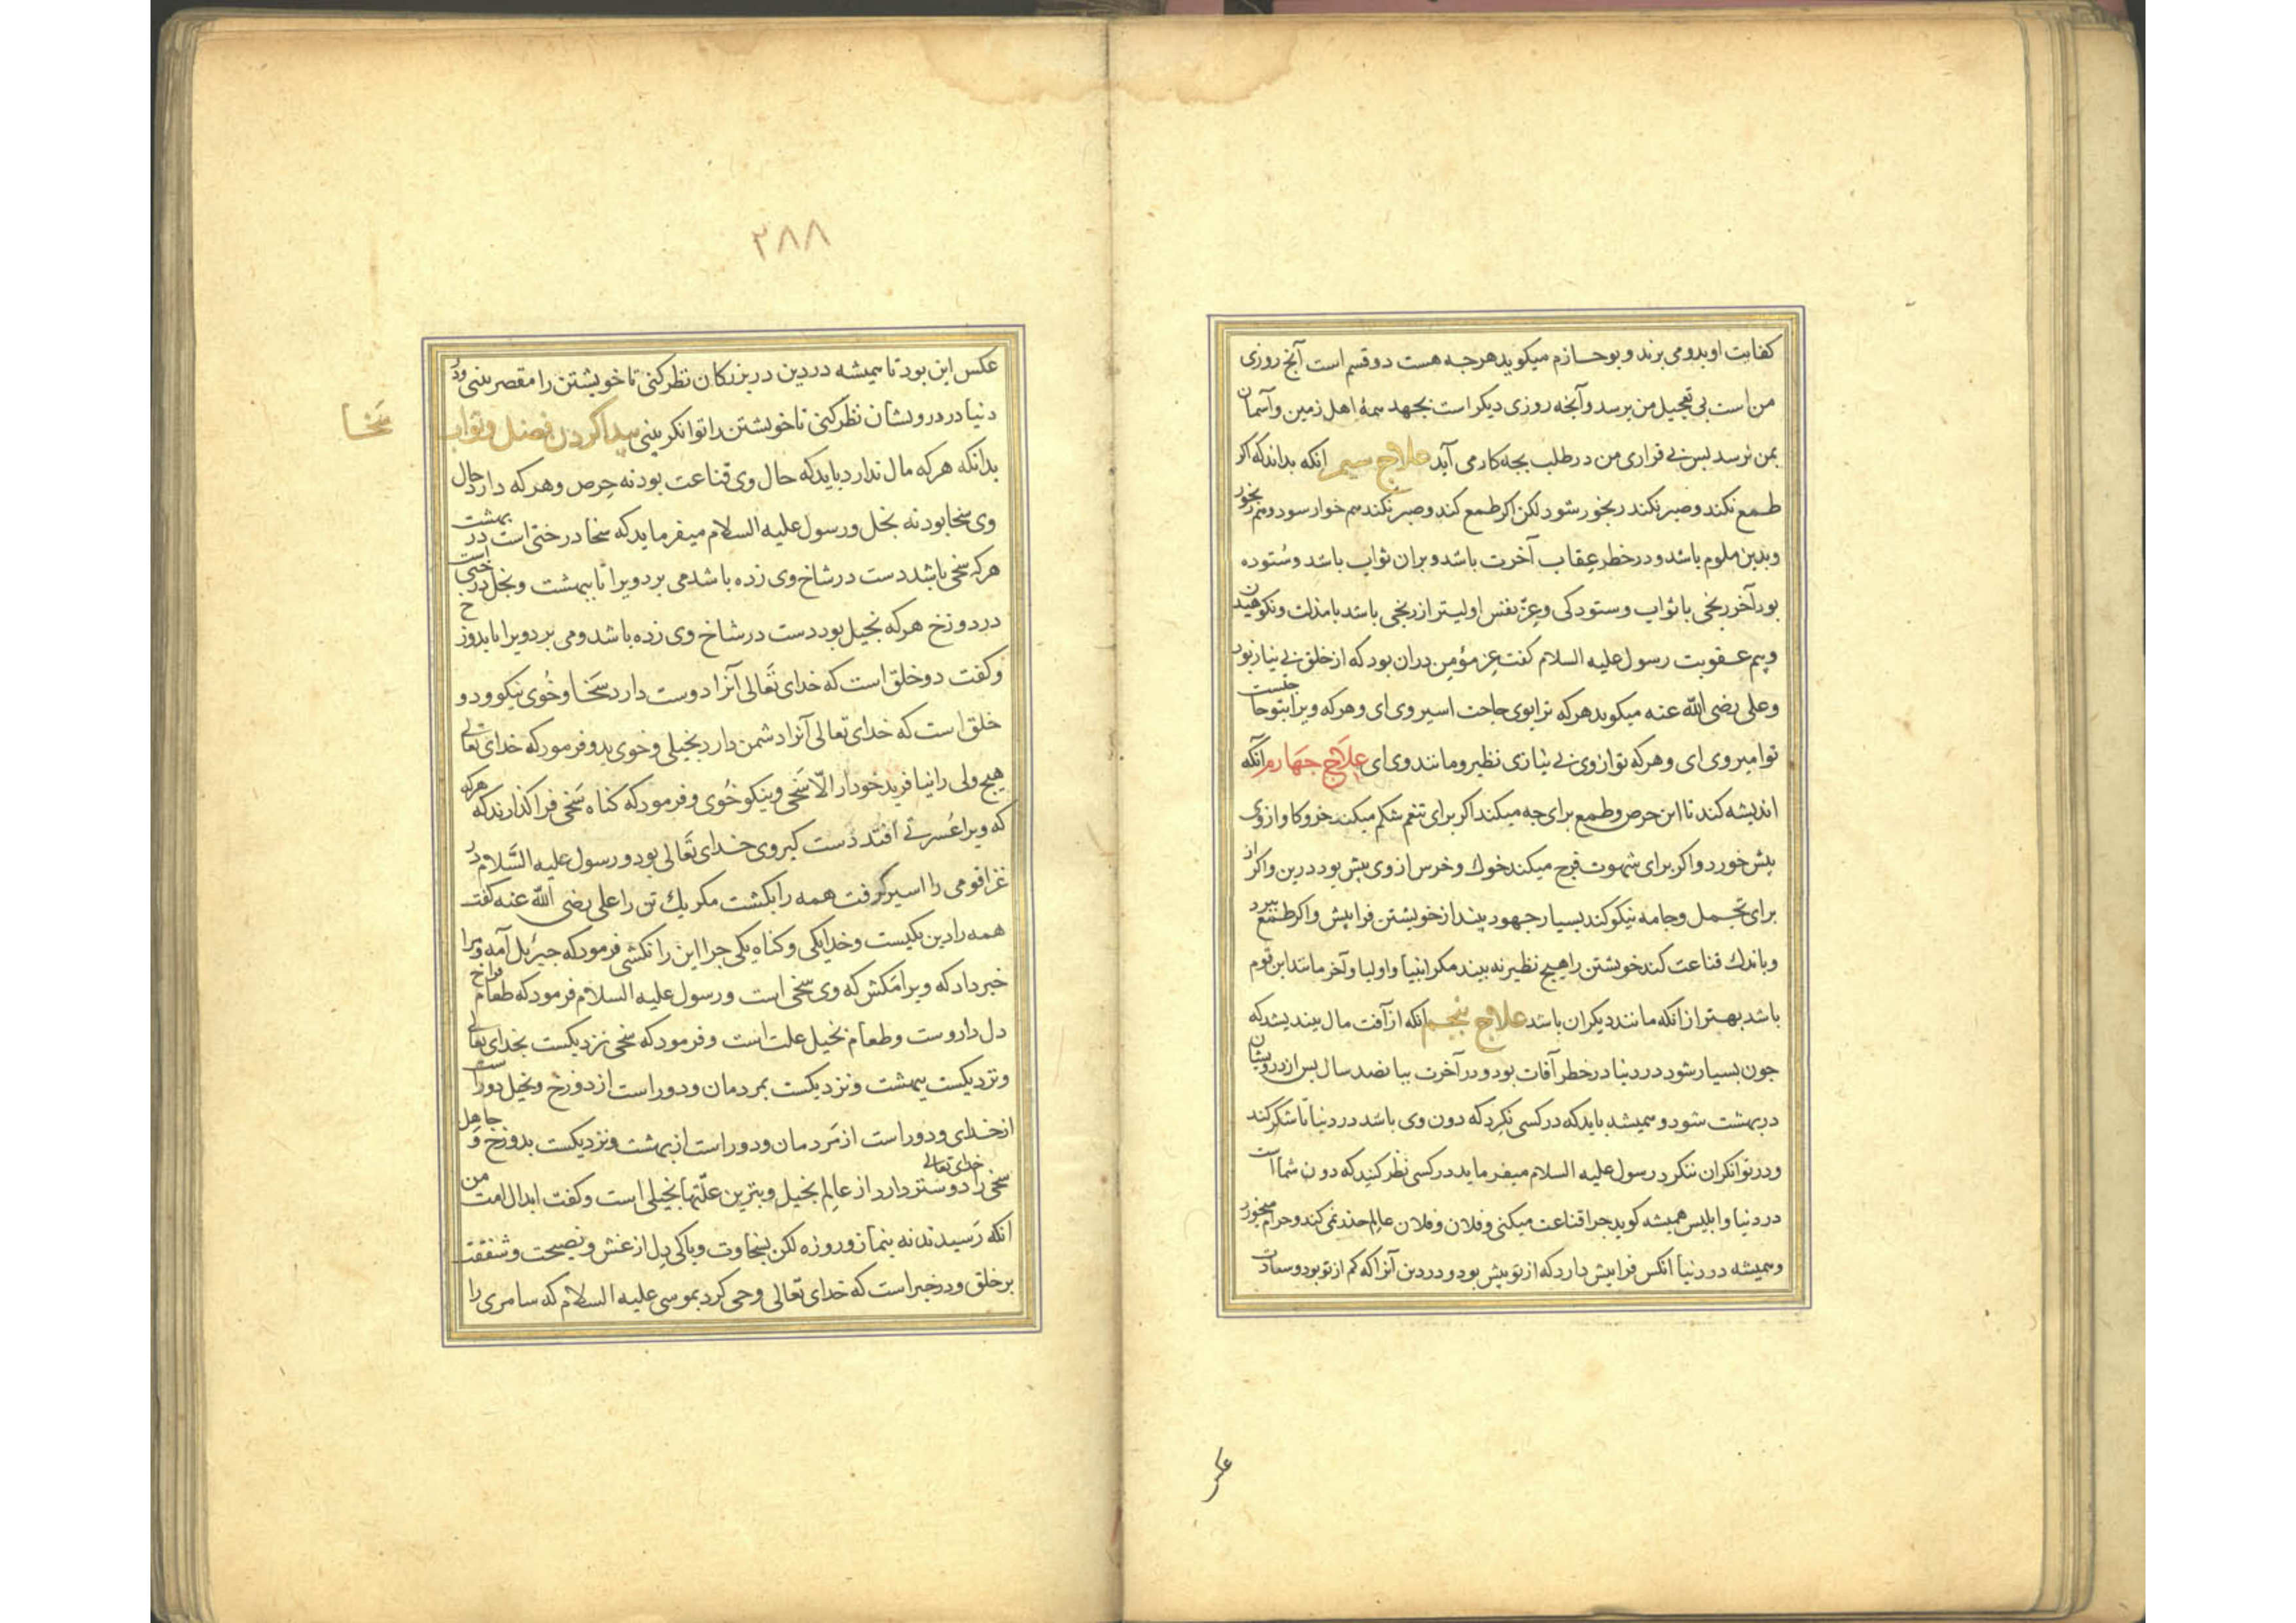 کفایت او بدو می برند و بوحازم میکوید هرچه هست دو قسم است آنچ روزی
من است بی تعجیل من برسد و آنچه روزی دیکر است بجهد همۀ اهل زمین و آسمان
بمن نرسد بس بی قراری من در طلب بجه کار می آید علاج سیم انکه بداند که اکر
طمع نکند و صبر نکند رنجور شود لکن اکر طمع کند و صبر نکند هم خوار سود و هم رنجور
و بدین ملوم باشد و در خطر عِقاب آخرت باشد و بران ثواب باشد و سُتوده
بود آخر رنجی با ثواب و ستودکی و عِزّ نفس اولیتر از رنجی باشد با مذلت و نکوهیدن
و بیم عقوبت رسول علیه السلام کفت عِز مؤمن دران بود که از خلق بی نیاز بود
و علی رضی الله عنه میکوید هرکه ترا بوی حاجت اسیر وی ای و هرکه ویرا بتو حاجتست
تو امیر وی ای و هرکه تو از وی بی نیازی نظیر و مانند وی ای علاج جهارم آنکه
اندیشه کند تا این حرص و طمع برای جه میکند اکر برای تنعم شکم میکند خر و کاو از وی
بیش خورد و اکر برای شهوت فرج میکند خوك و خرس از وی بیش بود درین و اکر از
برای تجمل و جامه نیکو کند بسیار جهود بیند از خویشتن فرا پیش و اکر طمع ببرد
و باندك قناعت کند خویشتن را هیچ نظیر نه بیند مکر انبیا و اولیا و آخر مانند این قوم
باشد بهتر از انکه مانند دیکران باشد علاج پنجم انکه از آفت مال بیندیشد که
جون بسیار شود در دنیا در خطر آفات بود و در آخرت ببانصد سال بس از درویشان
در بهشت شود و همیشه باید که در کسی نکرد که دون وی باشد در دنیا تا شکر کند
و در توانکران ننکرد رسول علیه السلام میفرماید در کسی نظر کنید که دون شما است
در دنیا و ابلیس همیشه کوید جرا قناعت میکنی و فلان و فلان عالم حذر نمی کند و حرام میخورد
و همیشه در دنیا انکس فرا بیش دارد که از تو بیش بود و در دین آنرا که کم از تو بود و سعادت
عکس
۲۸۸
عکس این بود تا همیشه در دین در بزرکان نظر کنی تا خویشتن را مقصر بینی و در
دنیا در درویشان نظر کنی تا خویشتن را توانکر بینی پیدا کردن فضل و ثواب سَخا
بدانکه هرکه مال ندارد باید که حال وی قناعت بود نه حِرص و هرکه دارد حال
وی سخا بود نه بخل و رسول علیه السلام میفرماید که سخا درختی است در بهشت
هرکه سخی باشد دست در شاخ وی زده باشد می برد ویرا تا ببهشت و بخل درختی است
در دوزخ هرکه بخیل بود دست در شاخ وی زده باشد و می برد ویرا تا بدوزخ
و کفت دو خلق است که خدای تَعالی آنرا دوست دارد سَخا و خُوی نیکو و دو
خلق است که خدای تعالی آنرا دشمن دارد بخیلی و خوی بد و فرمود که خدای تعالی
هیچ ولی را نیافرید خود را الّا سَخی و نیکو خُوی و فرمود که کناه سَخی فرا کذارند که هرکه
که ویرا عُسرتی افتد دست کیر وی خدای تَعالی بود و رسول علیه السَّلام در
غزا قومی را اسیر کرفت همه را بکشت مکر یك تن را علی رضی الله عنه کفت
همه را دین یکیست و خدا یکی و کناه یکی جرا این را نکشتی فرمود که جبرئیل آمد و مرا
خبر داد که ویرا مَکش که وی سخی است و رسول علیه السلام فرمود که طعام فراخ
دل داروست و طعام بخیل علت است و فرمود که سخی نزدیکست بخدای تعالی
و نزدیکست ببهشت و نزدیکست بمردمان و دور است از دوزخ و بخیل دور است
از خدای و دور است از مَردمان و دور است از بهشت و نزدیکست بدوزخ و جاهل
سخی را خدای تعالی دوستر دارد از عالِم بخیل و بترین علّتها بخیلی است و کفت ابدال امت من
انکه رَسیدند نه بنماز و روزه لکن بسخاوت و پاکی دِل از غش و نصیحت و شفقت
بر خلق و در خبر است که خدای تعالی وحی کرد بموسی علیه السلام که سامری را